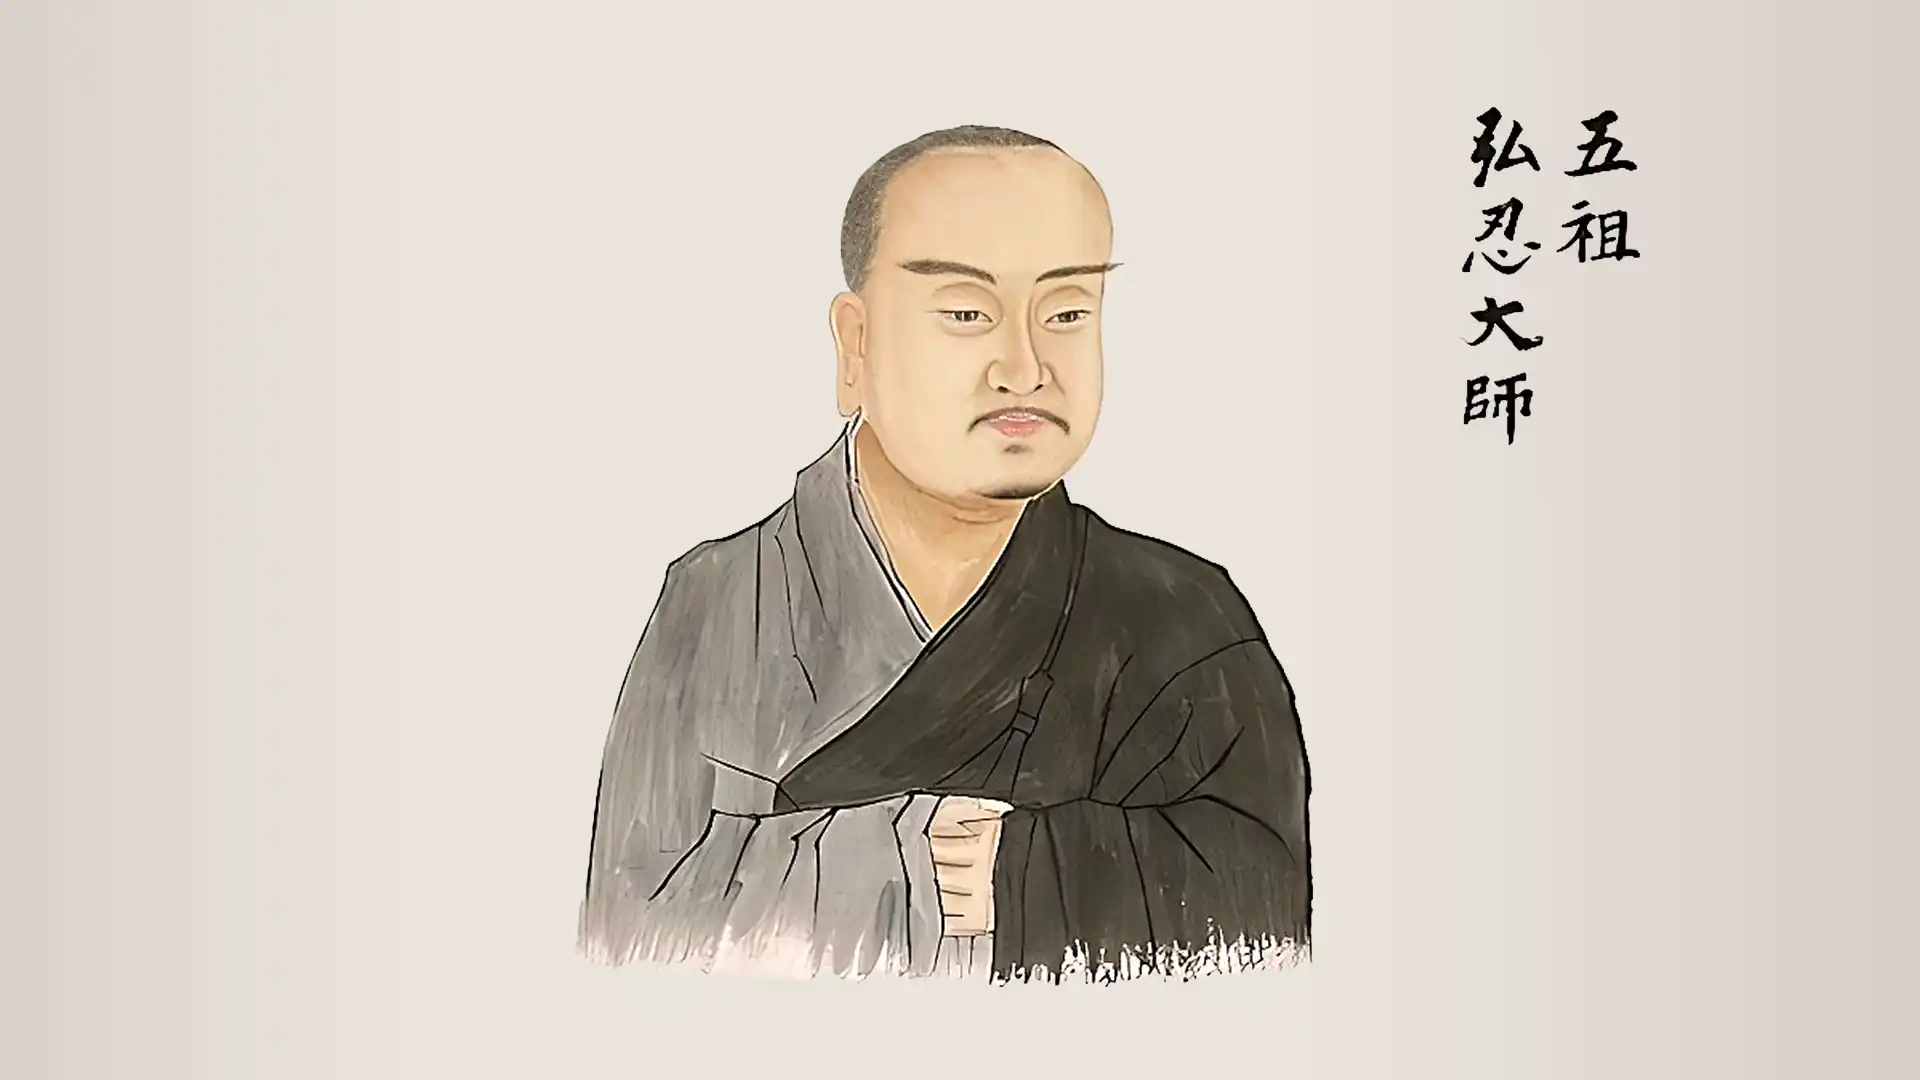 五祖
弘忍大師